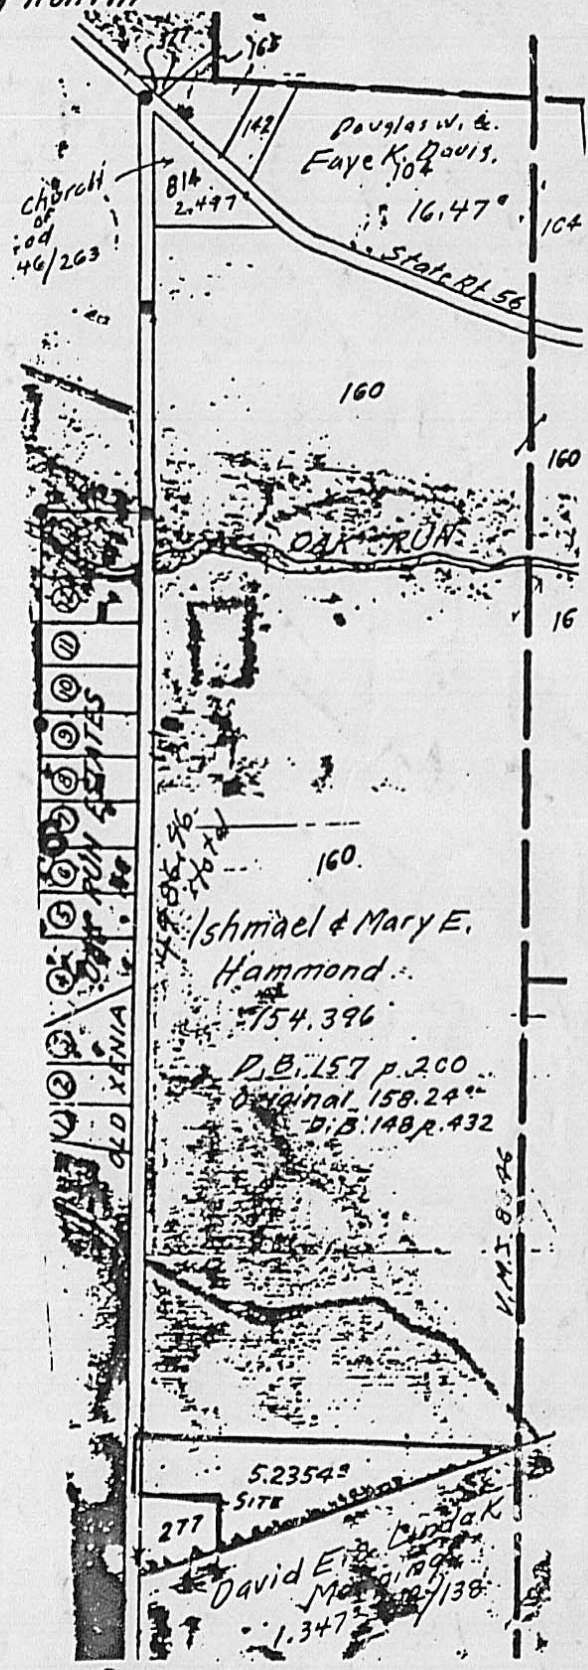 377
165
142
Douglas W. &
Faye K. Davis
104
16.47ª
164
814
2.497
Church
of
46/263
State Rt 56
160
160
OAK RUN
16
11
10
9
8
7
6
5
4
3
2
1
OAK RUN ESTATES
OLD XENIA
160
Ishmael & Mary E.
Hammond
154.396
D.B. 157 p.200
Original 158.24ᵃᶜ
D.B. 148 p.432
V.M.S.
5.2354ª
SITE
277
David E. & Linda K
1.347
/138